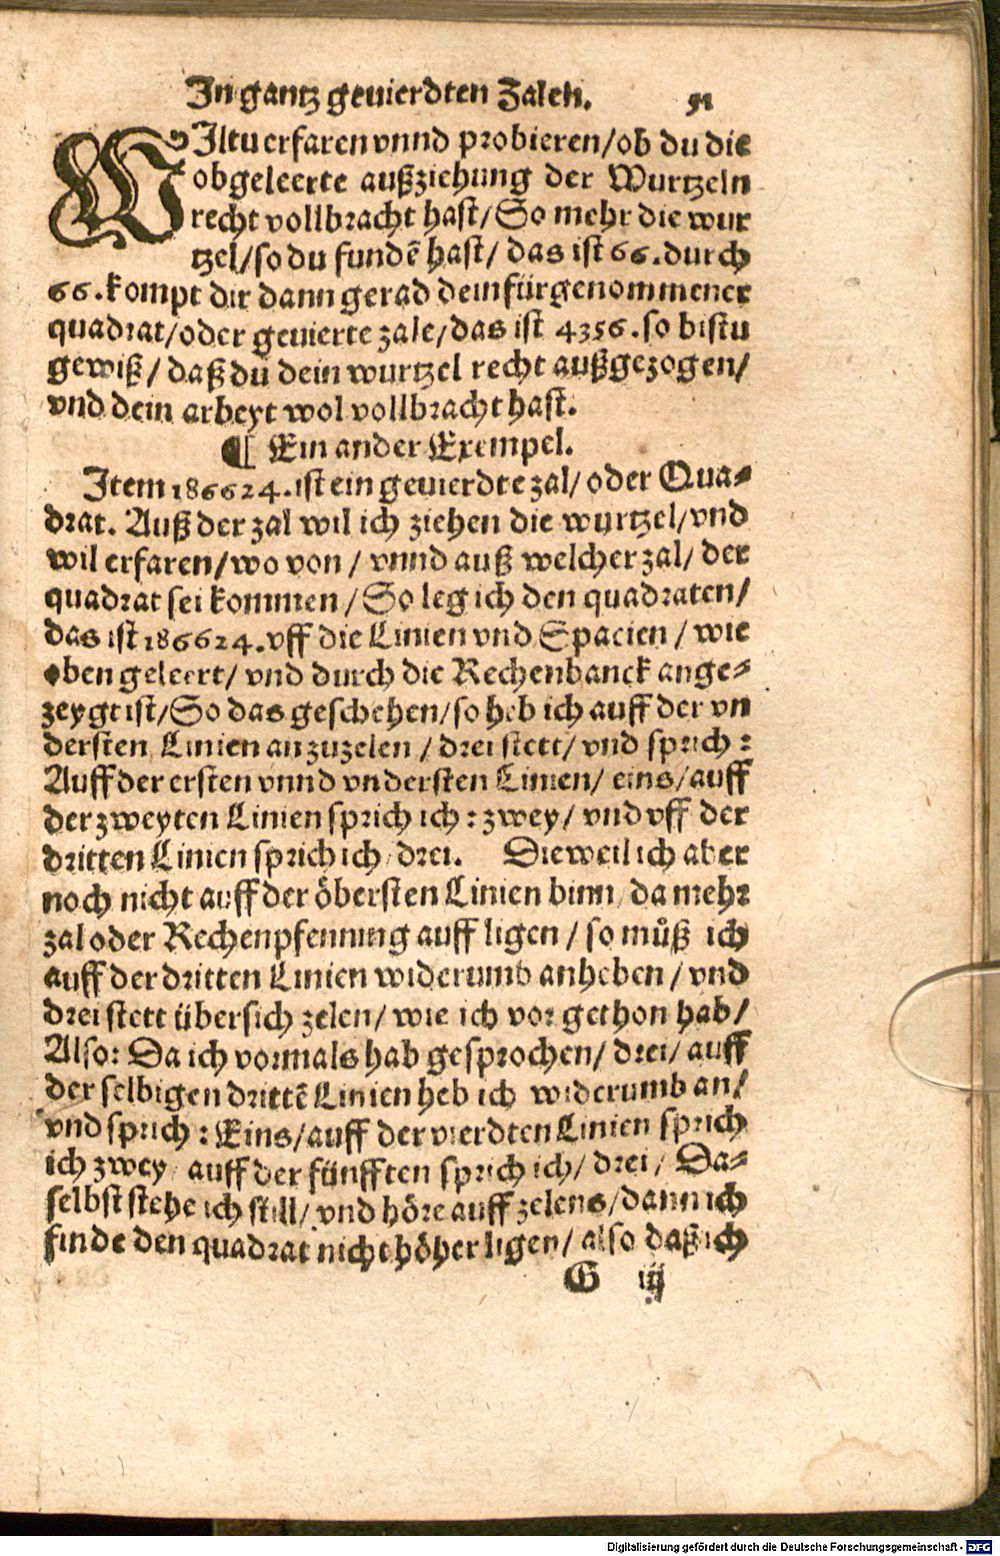 In gantz geuierdten Zalen. 51
WIltu erfaren vnnd probieren/ob du die
obgeleerte außziehung der Wurtzeln
recht vollbracht hast/So mehr die wur
tzel/so du fundē hast/ das ist 66.durch
66.kompt dir dann gerad dein fürgenommener
quadrat/oder geuierte zale/das ist 4356.so bistu
gewiß/ daß du dein wurtzel recht außgezogen/
vnd dein arbeyt wol vollbracht hast.
¶ Ein ander Exempel.
Item 186624.ist ein geuierdte zal/ oder Qua⸗
drat. Auß der zal wil ich ziehen die wurtzel/vnd
wil erfaren/wo von / vnnd auß welcher zal/ der
quadrat sei kommen /So leg ich den quadraten/
das ist 186624.vff die Linien vnd Spacien / wie
oben geleert/ vnd durch die Rechenbanck ange⸗
zeygt ist/So das geschehen/so heb ich auff der vn
dersten Linien an zuzelen / drei stett/ vnd sprich :
Auff der ersten vnnd vndersten Linien/ eins/auff
der zweyten Linien sprich ich : zwey/ vnd vff der
dritten Linien sprich ich/drei. Dieweil ich aber
noch nicht auff der öbersten Linien binn/da mehr
zal oder Rechenpfenning auff ligen / so můß ich
auff der dritten Linien widerumb anheben / vnd
drei stett übersich zelen/ wie ich vor gethon hab/
Also: Da ich vormals hab gesprochen/ drei/ auff
der selbigen drittē Linien heb ich widerumb an/
vnd sprich : Eins/auff der vierdten Linien sprich
ich zwey/ auff der fünfften sprich ich/ drei/ Da⸗
selbst stehe ich still/ vnd höre auff zelens/dann ich
finde den quadrat nicht höher ligen/ also daß ich
G iij
Digitalisierung gefördert durch die Deutsche Forschungsgemeinschaft - DFG